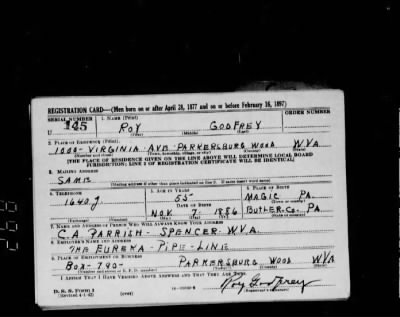 REGISTRATION CARD—(Men born on or after April 28, 1877 and on or before February 16, 1897)
SERIAL NUMBER 1. NAME (Print) ORDER NUMBER
U 145 ROY GODFREY
(First) (Middle) (Last)
2. PLACE OF RESIDENCE (Print)
1000 - VIRGINIA AVE PARKERSBURG WOOD W.VA
(Number and street) (Town, township, village, or city) (County) (State)
[THE PLACE OF RESIDENCE GIVEN ON THE LINE ABOVE WILL DETERMINE LOCAL BOARD
JURISDICTION; LINE 2 OF REGISTRATION CERTIFICATE WILL BE IDENTICAL]
3. MAILING ADDRESS
SAME
[Mailing address if other than place indicated on line 2. If same insert word same]
4. TELEPHONE 5. AGE IN YEARS 6. PLACE OF BIRTH
1640 J 55 MAGIC PA.
DATE OF BIRTH (Town or county)
NOV. 7. 1886 BUTLER-CO. PA
(Exchange) (Number) (Mo.) (Day) (Yr.) (State or country)
7. NAME AND ADDRESS OF PERSON WHO WILL ALWAYS KNOW YOUR ADDRESS
C.A PARRISH - SPENCER - W.VA.
8. EMPLOYER'S NAME AND ADDRESS
THE EUREKA - PIPE - LINE
9. PLACE OF EMPLOYMENT OR BUSINESS
BOX-790- PARKERSBURG WOOD W.VA
(Number and street or R. F. D. number) (Town) (County) (State)
I AFFIRM THAT I HAVE VERIFIED ABOVE ANSWERS AND THAT THEY ARE TRUE.
D. S. S. Form 1
(Revised 4-1-42) (over) Roy Godfrey
(Registrant's signature)